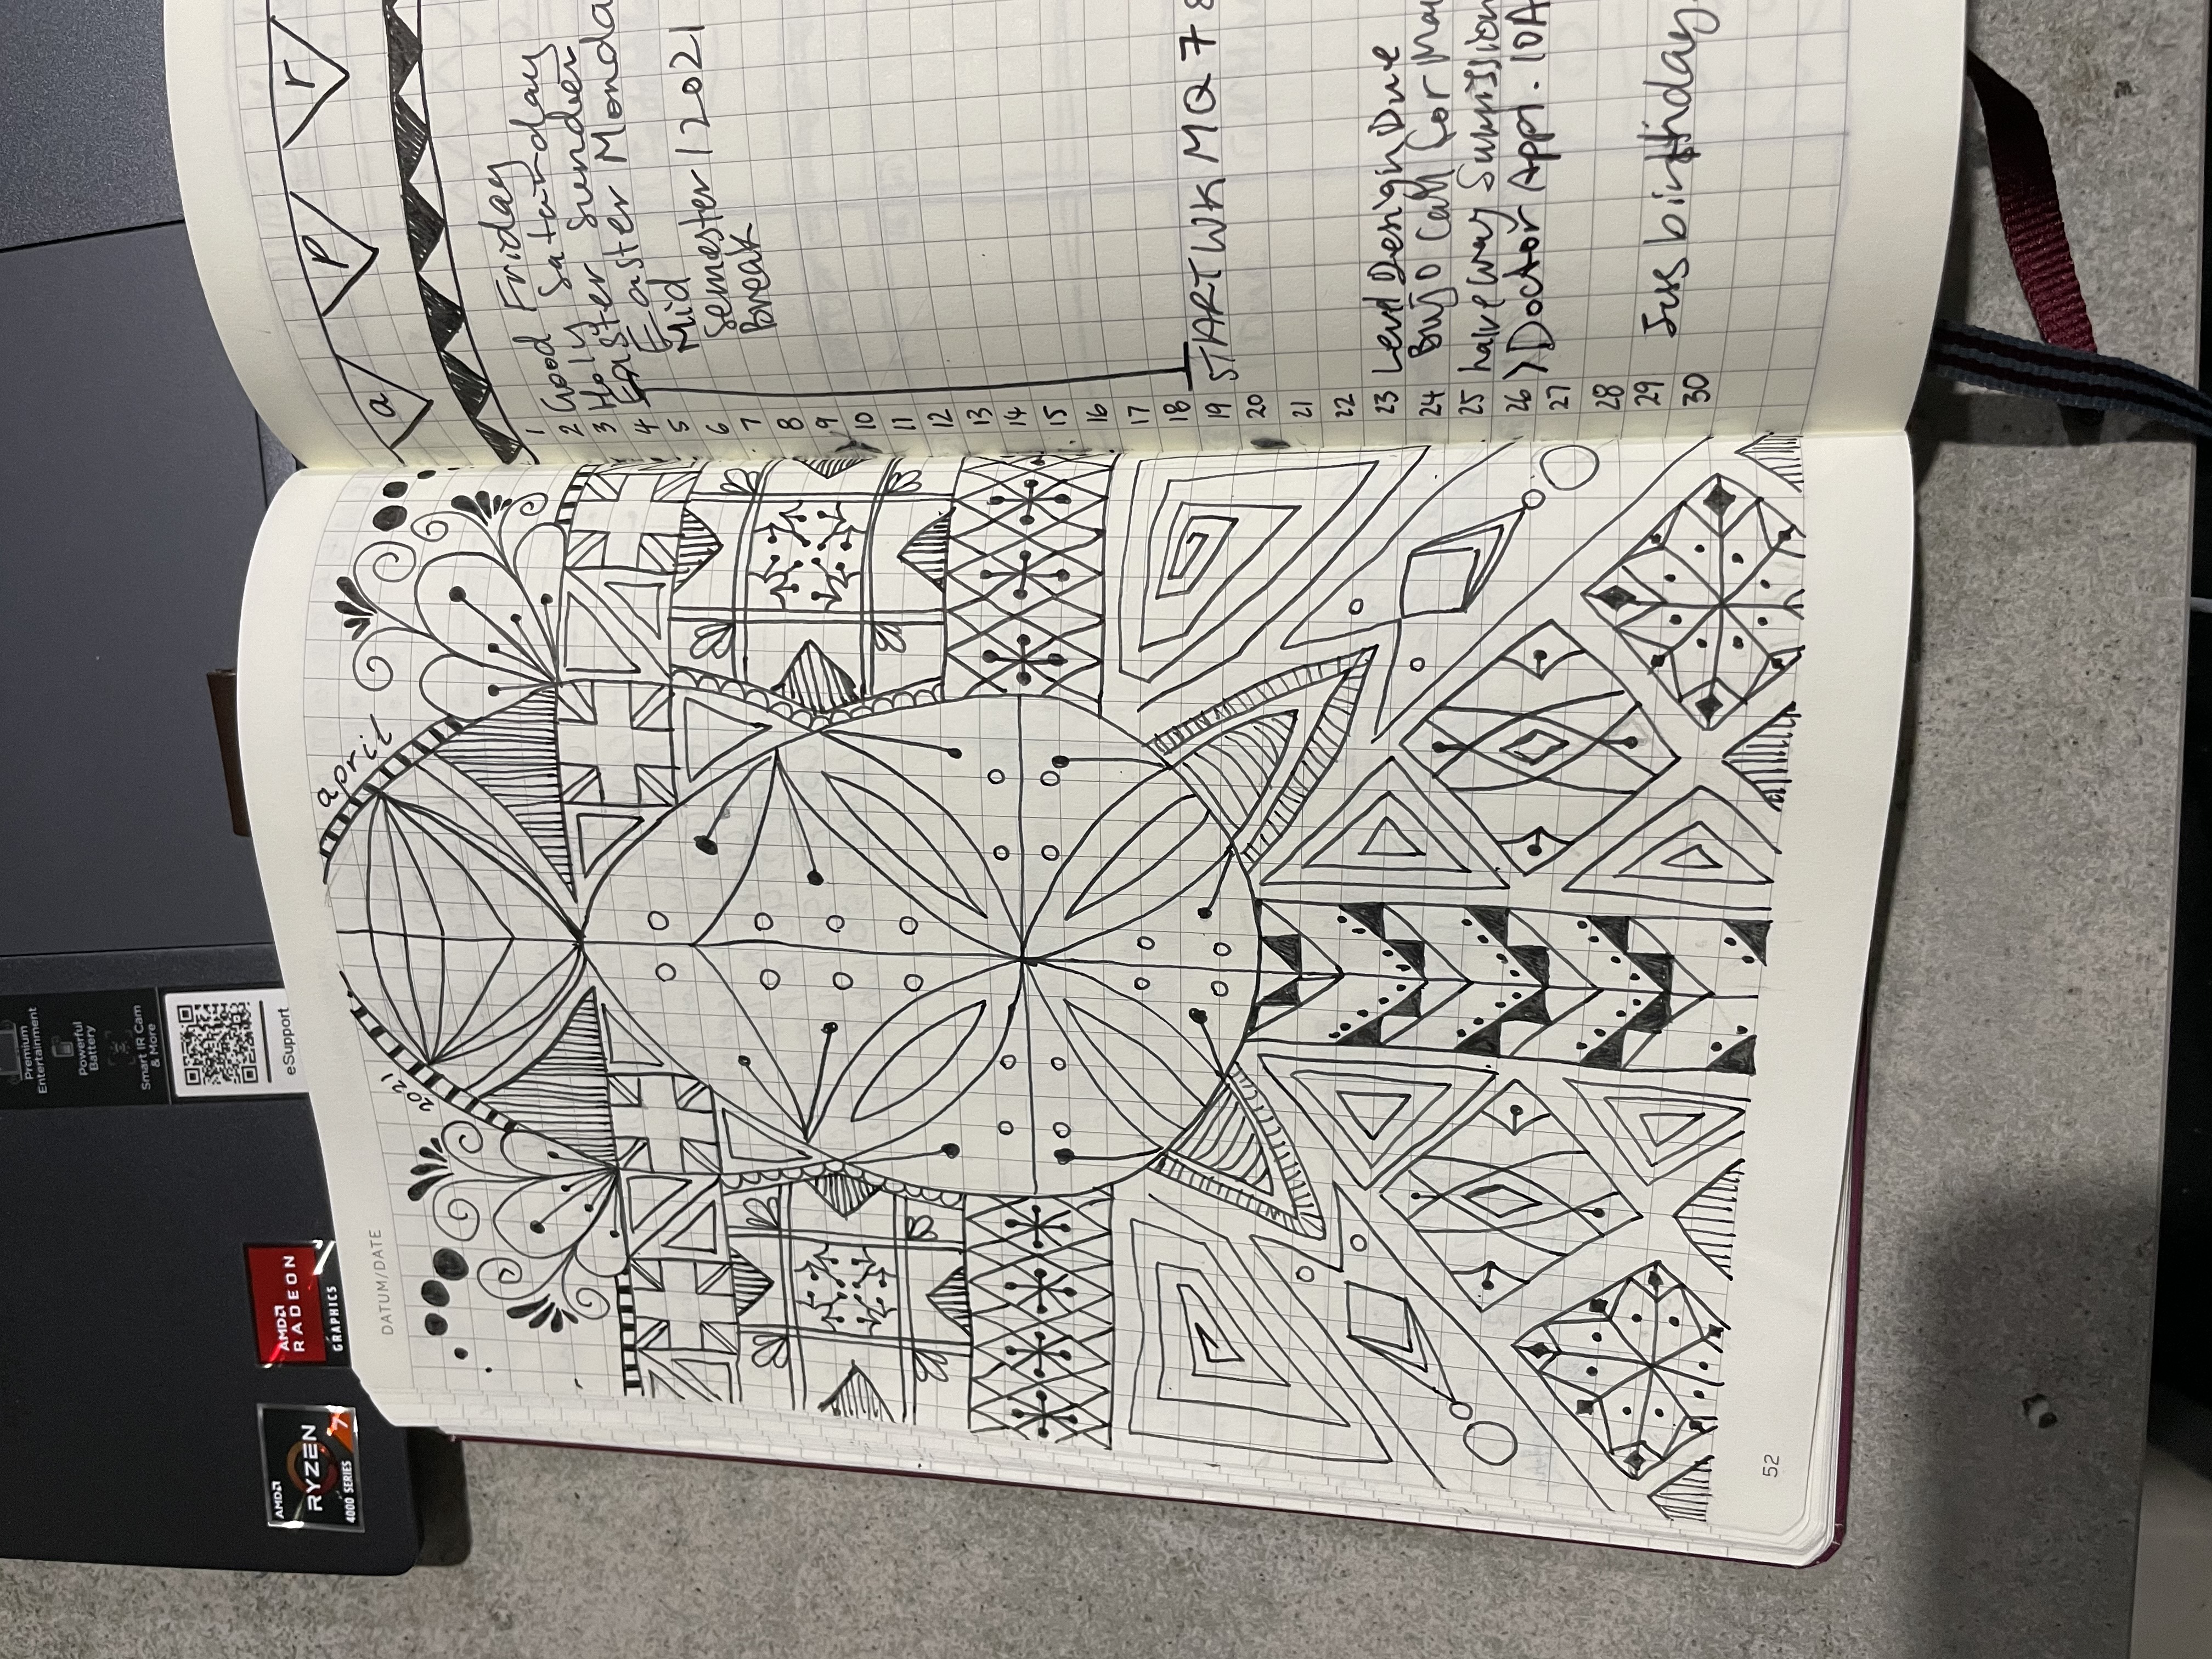 Premium
Entertainment
Powerful
Battery
Smart IR Cam
& More
eSupport
AMD
RYZEN
4000 SERIES 7
AMD
RADEON
GRAPHICS
DATUM/DATE
2021
april
52
a p r
1
2 Good Friday
3 Holy Saturday
4 Easter Sunday
5 Easter Monda
6 Mid
7 Semester 1 2021
8 Break
9
10
11
12
13
14
15
16
17
18
19 START WK MQ 7 8
20
21
22
23 Level Design Due
24 Bujo Call for Ma
25
26 > Doctor Appt. 10A
27
28
29 birthday
30